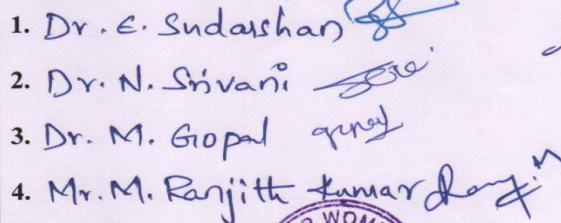 1. Dr. E. Sudarshan
2. Dr. N. Srivani
3. Dr. M. Gopal
4. Mr. M. Ranjith Kumar
WOM